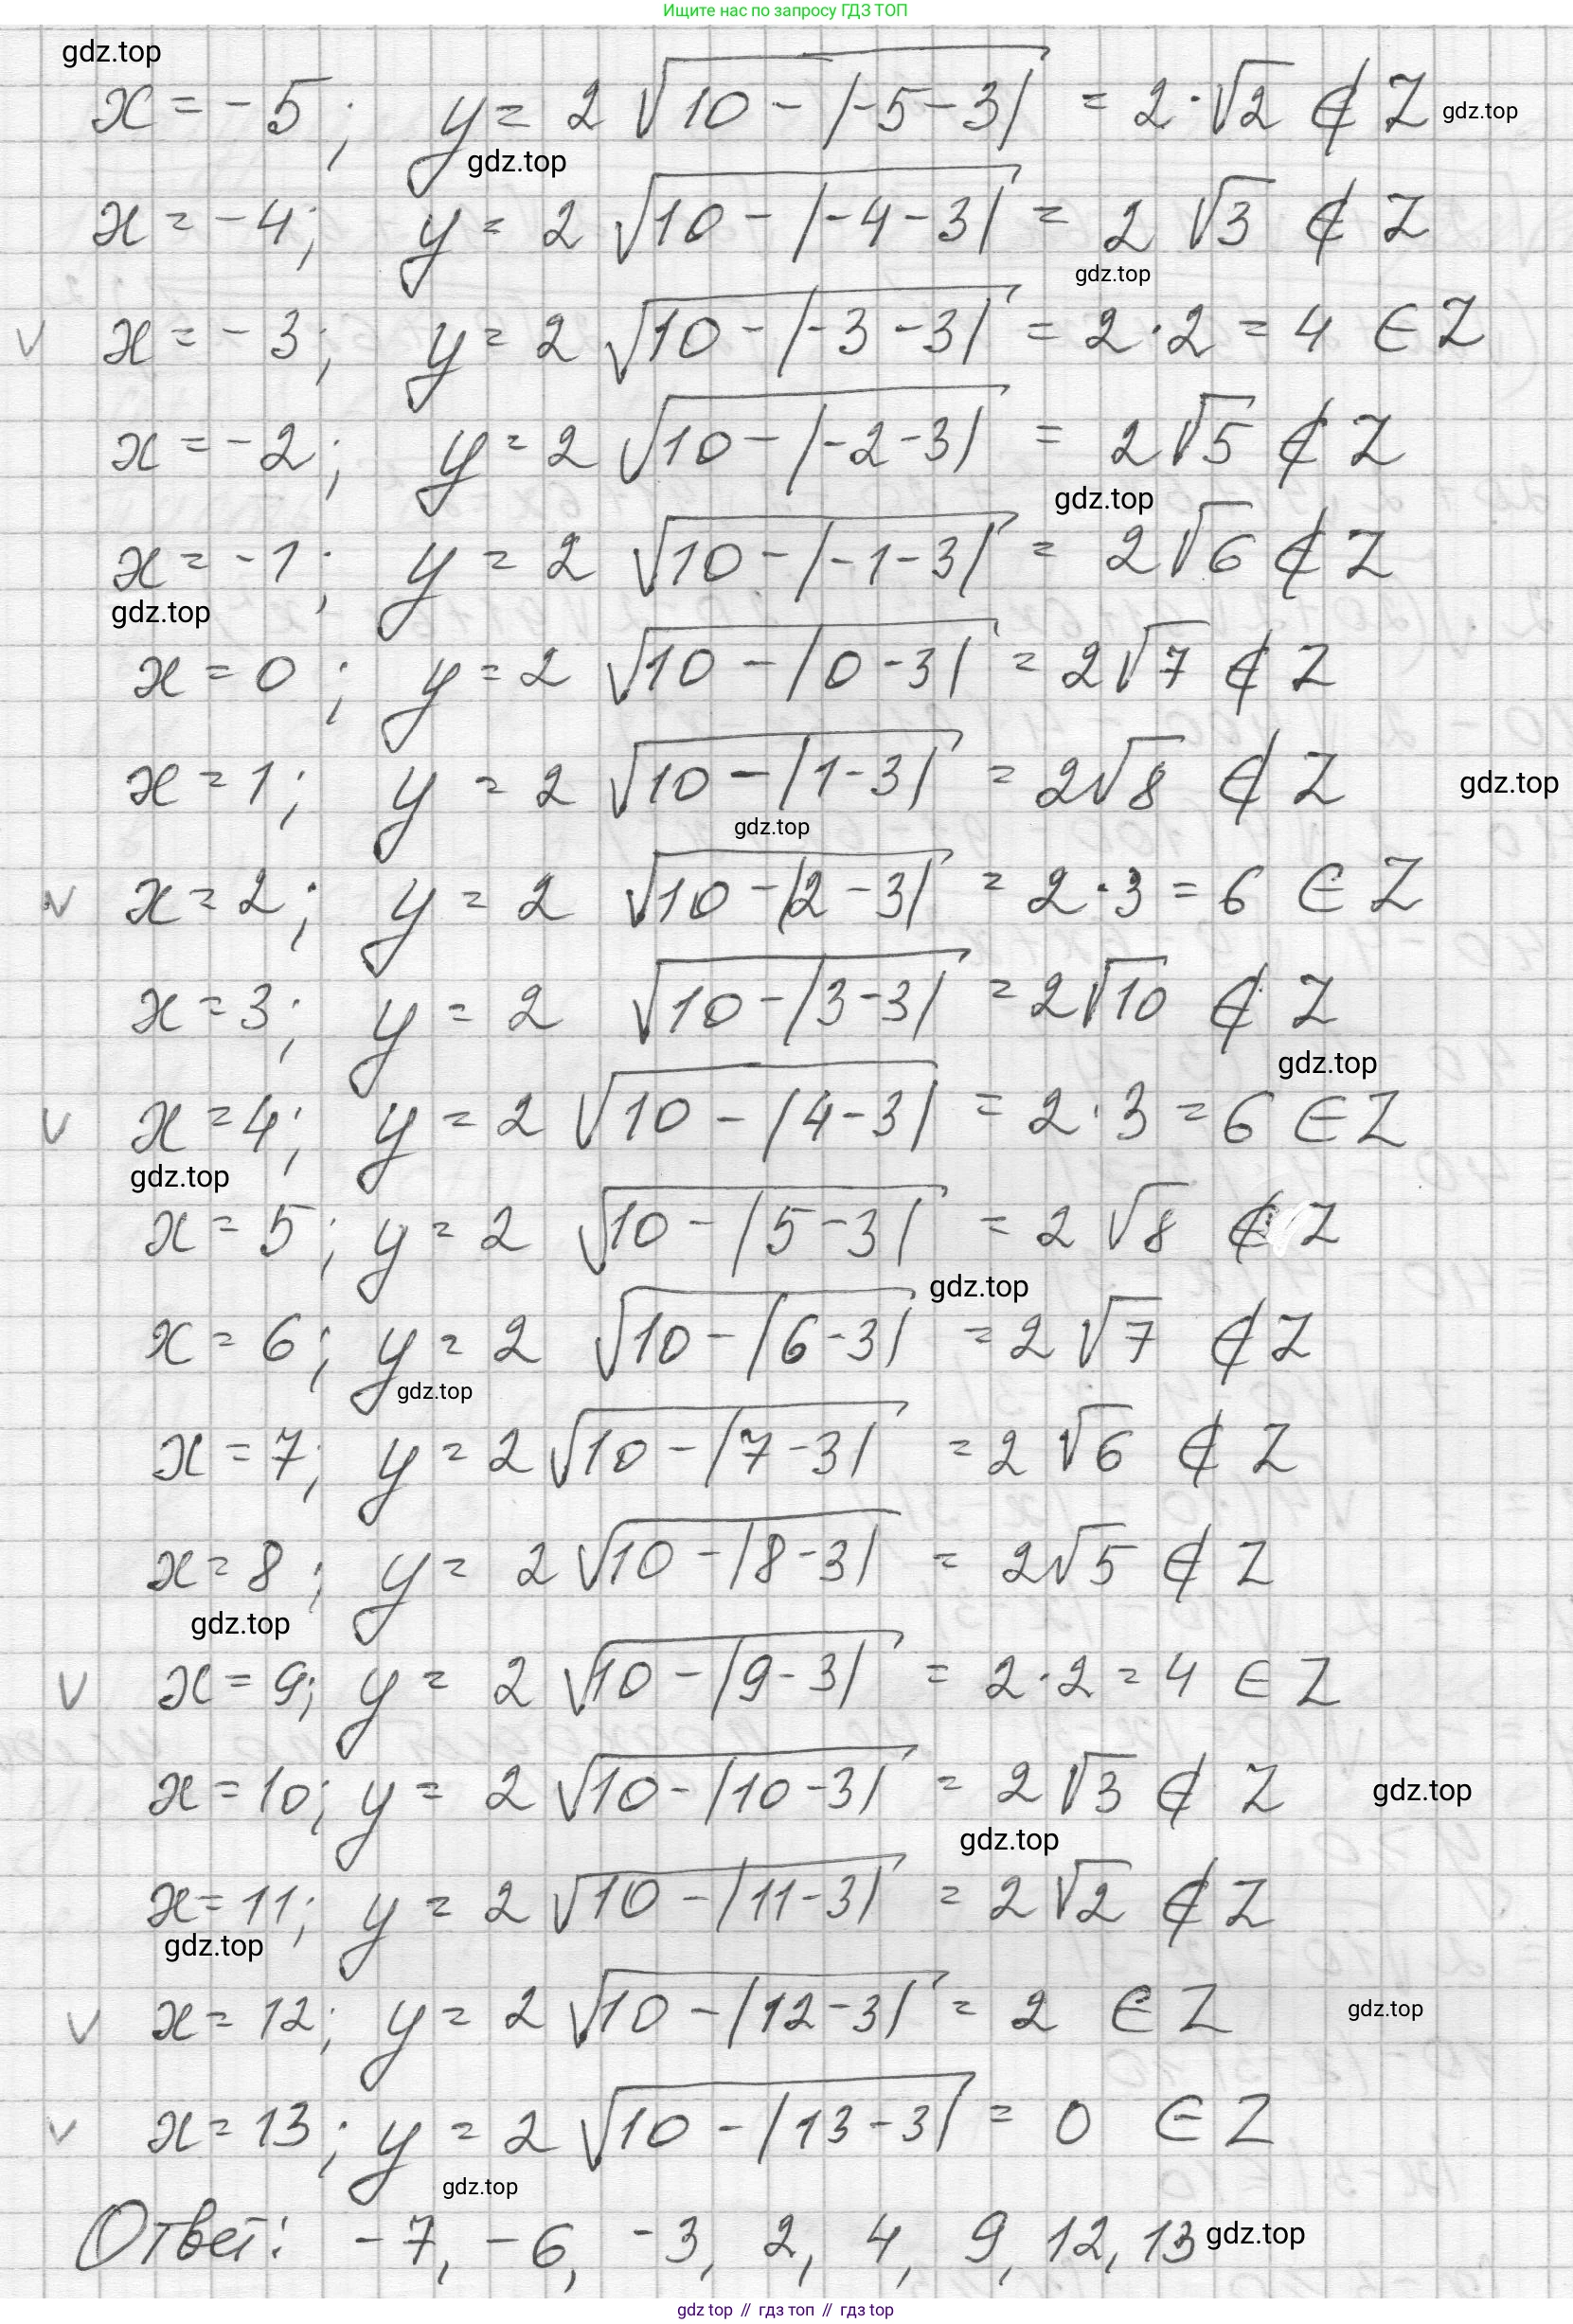 Ищите нас по запросу ГДЗ ТОП
gdz.top
x = -5; y = 2 √(10 - |-5-3|) = 2·√2 ∉ Z gdz.top
gdz.top
x = -4; y = 2 √(10 - |-4-3|) = 2 √3 ∉ Z
gdz.top
V x = -3; y = 2 √(10 - |-3-3|) = 2·2 = 4 ∈ Z
x = -2; y = 2 √(10 - |-2-3|) = 2√5 ∉ Z
gdz.top
x = -1; y = 2 √(10 - |-1-3|) = 2√6 ∉ Z
gdz.top
x = 0; y = 2 √(10 - |0-3|) = 2√7 ∉ Z
x = 1; y = 2 √(10 - |1-3|) = 2√8 ∉ Z gdz.top
gdz.top
V x = 2; y = 2 √(10 - |2-3|) = 2·3 = 6 ∈ Z
x = 3; y = 2 √(10 - |3-3|) = 2√10 ∉ Z
gdz.top
V x = 4; y = 2 √(10 - |4-3|) = 2·3 = 6 ∈ Z
gdz.top
x = 5; y = 2 √(10 - |5-3|) = 2 √8 ∉ Z
gdz.top
x = 6; y = 2 √(10 - |6-3|) = 2 √7 ∉ Z
gdz.top
x = 7; y = 2 √(10 - |7-3|) = 2 √6 ∉ Z
x = 8; y = 2 √(10 - |8-3|) = 2√5 ∉ Z
gdz.top
V x = 9; y = 2 √(10 - |9-3|) = 2·2 = 4 ∈ Z
x = 10; y = 2 √(10 - |10-3|) = 2 √3 ∉ Z gdz.top
gdz.top
x = 11; y = 2 √(10 - |11-3|) = 2 √2 ∉ Z
gdz.top
V x = 12; y = 2 √(10 - |12-3|) = 2 ∈ Z gdz.top
V x = 13; y = 2 √(10 - |13-3|) = 0 ∈ Z
gdz.top
Ответ: -7, -6, -3, 2, 4, 9, 12, 13 gdz.top
gdz top // гдз топ // гдз top